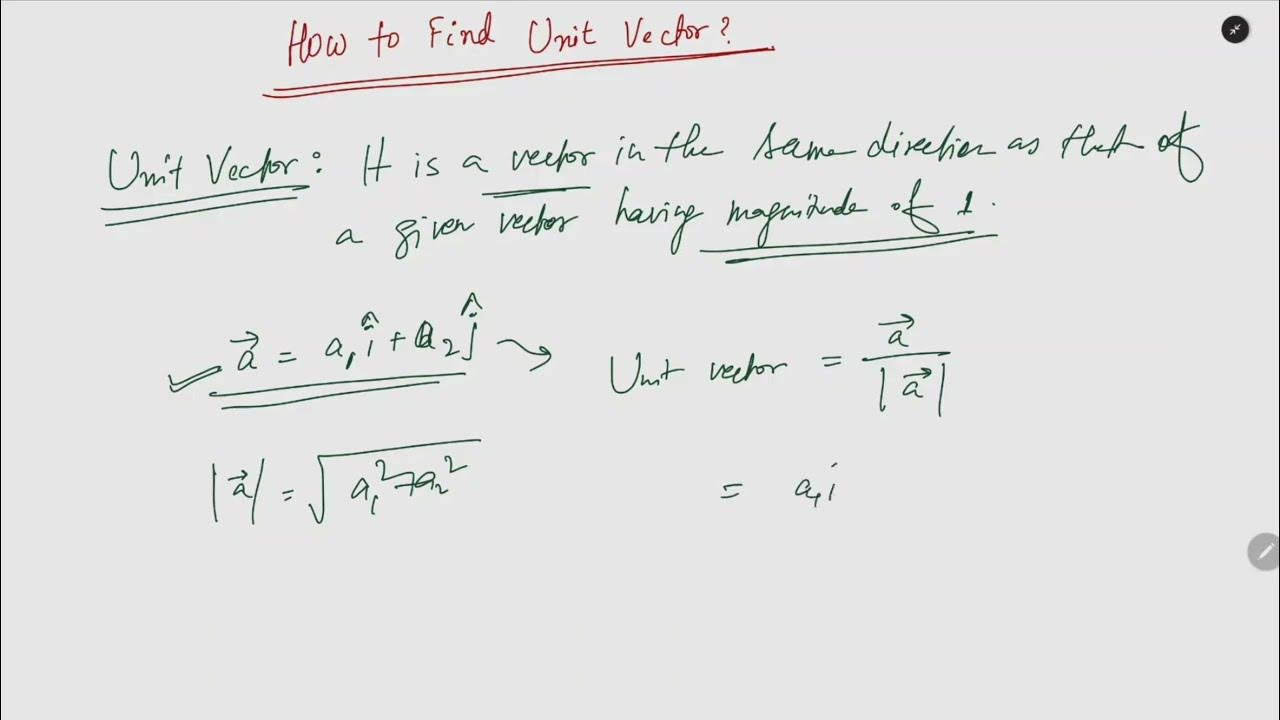 How to Find Unit Vector?
Unit Vector: It is a vector in the same direction as that of
a given vector having magnitude of 1.
a⃗ = a₁î + a₂ĵ → Unit vector = a⃗ / |a⃗|
|a⃗| = √(a₁² + a₂²) = a₁i